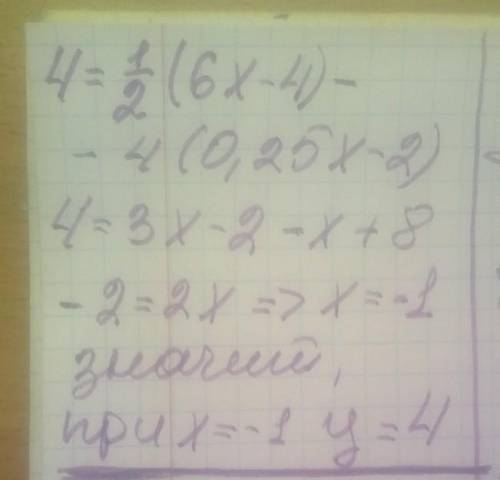 4 = 1/2 (6x - 4) -
- 4 (0,25x - 2)
4 = 3x - 2 - x + 8
- 2 = 2x => x = -1
значит,
при x = -1 y = 4